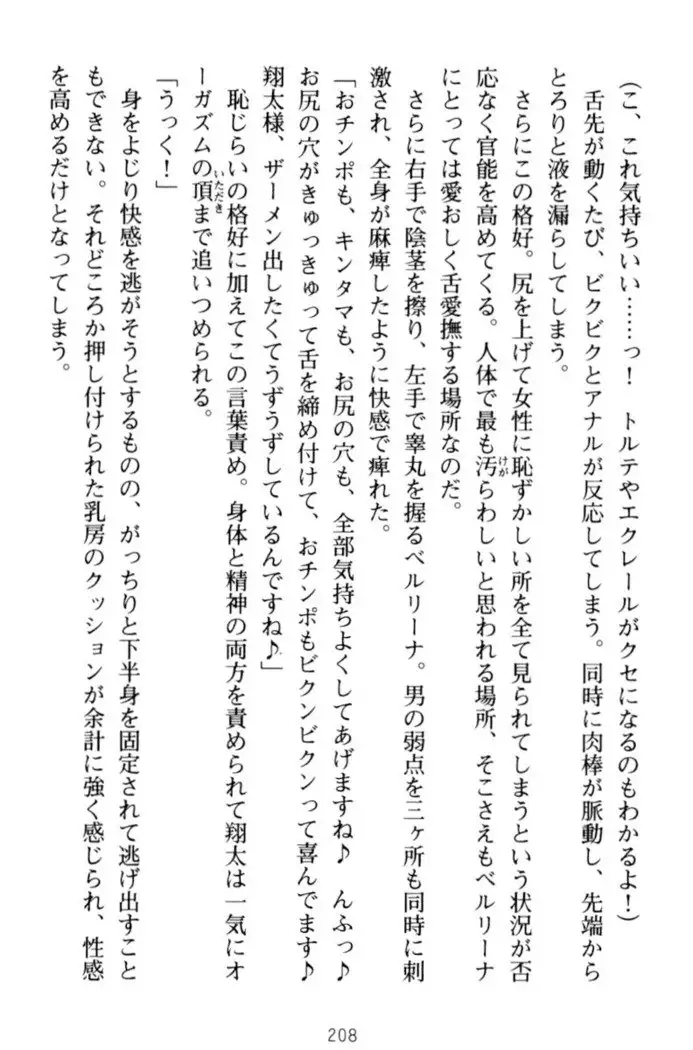 (こ、これ気持ちいい……っ! トルテやエクレールがクセになるのもわかるよ!)
舌先が動くたび、ビクビクとアナルが反応してしまう。同時に肉棒が脈動し、先端から
とろりと液を漏らしてしまう。
さらにこの格好。尻を上げて女性に恥ずかしい所を全て見られてしまうという状況が否
応なく官能を高めてくる。人体で最も汚らわしいと思われる場所、そこさえもベルリーナ
にとっては愛おしく舌愛撫する場所なのだ。
さらに右手で陰茎を擦り、左手で睾丸を握るベルリーナ。男の弱点を三ヶ所も同時に刺
激され、全身が麻痺したように快感で痺れた。
「おチンポも、キンタマも、お尻の穴も、全部気持ちよくしてあげますね♪ んふっ♪
お尻の穴がきゅっきゅって舌を締め付けて、おチンポもビクンビクンって喜んでます♪
翔太様、ザーメン出したくてうずうずしているんですね♪」
恥じらいの格好に加えてこの言葉責め。身体と精神の両方を責められて翔太は一気にオ
ーガズムの頂まで追いつめられる。
「うっく!」
身をよじり快感を逃がそうとするものの、がっちりと下半身を固定されて逃げ出すこと
もできない。それどころか押し付けられた乳房のクッションが余計に強く感じられ、性感
を高めるだけとなってしまう。
けが
いただき
208